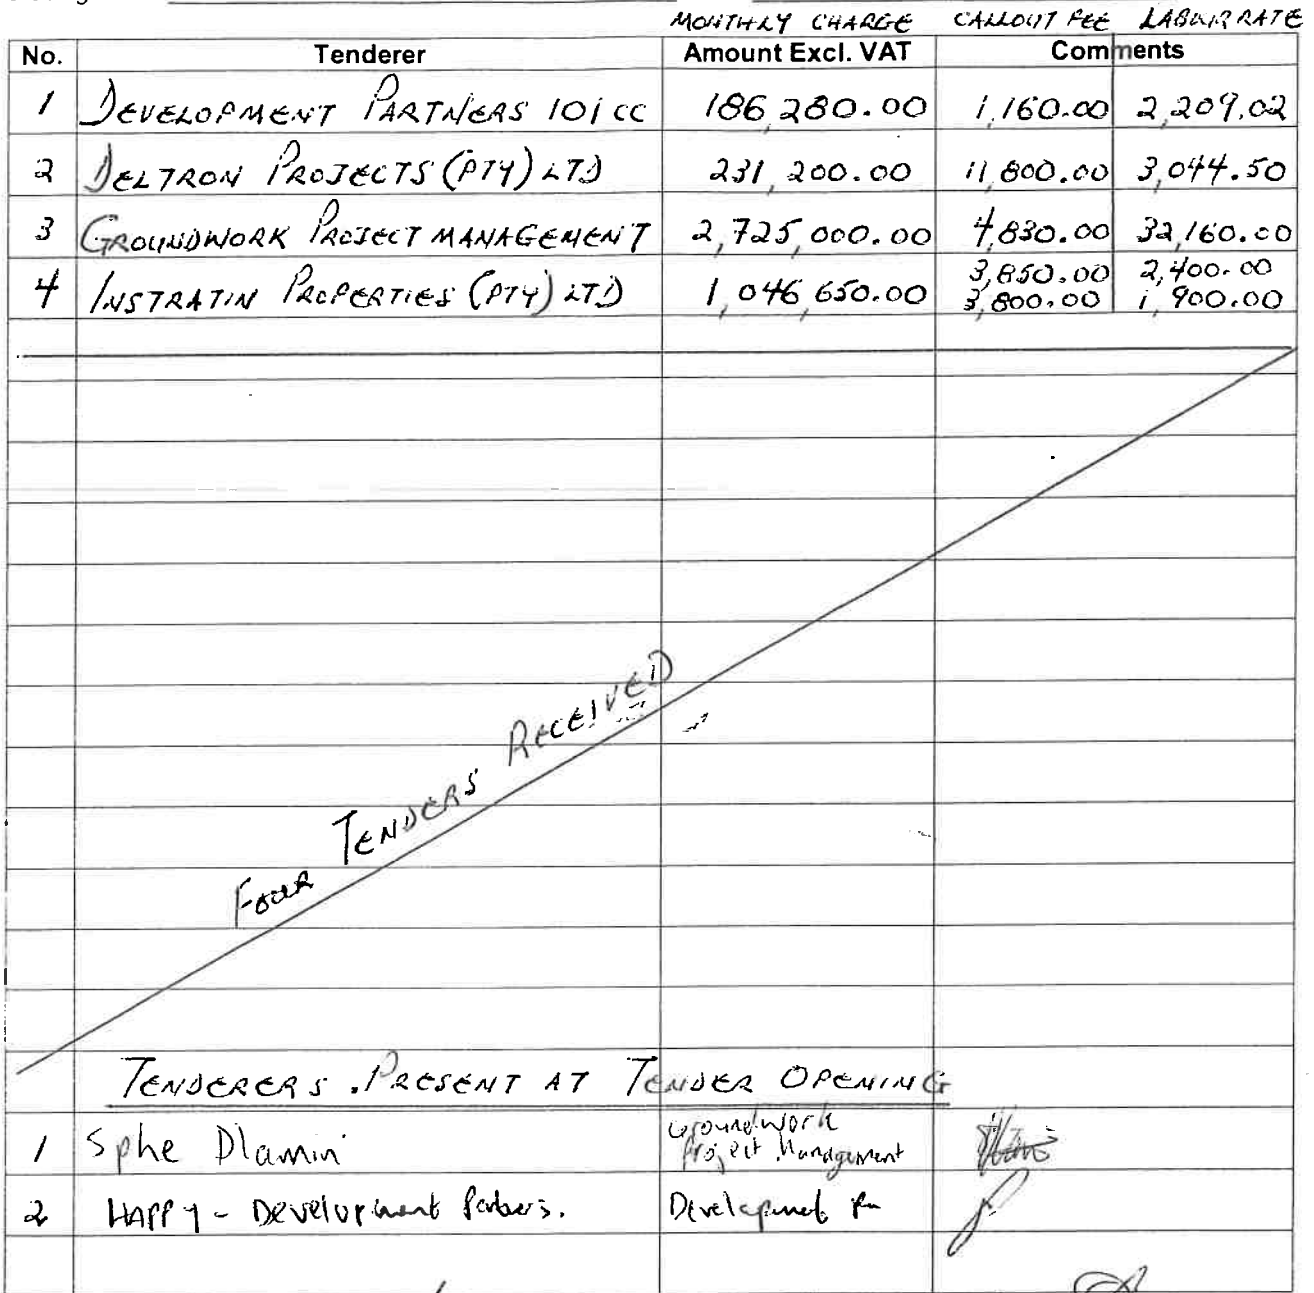 MONTHLY CHARGE CALLOUT FEE LABOUR RATE
No. Tenderer Amount Excl. VAT Comments
1 DEVELOPMENT PARTNERS 101 CC 186,280.00 1,160.00 2,209.02
2 DELTRON PROJECTS (PTY) LTD 231,200.00 11,800.00 3,044.50
3 GROUNDWORK PROJECT MANAGEMENT 2,725,000.00 4,830.00 32,160.00
3,850.00 2,400.00
4 INSTRATIN PROPERTIES (PTY) LTD 1,046,650.00 3,800.00 1,900.00
FOUR TENDERS RECEIVED
TENDERERS PRESENT AT TENDER OPENING
1 Sphe Dlamini Groundwork
Project Management
2 HAPPY - Development Partners. Development